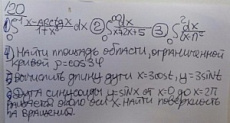 120
① ∫ x-arctgx / 1+x² dx ② ∫ dx / x²+2x+5 ③ ∫ dx
1) Найти площадь области, ограниченной
кривой ρ=cos3φ
2) Вычислить длину дуги x=3cost, y=3sint
3) Дуга синусоиды y=sinx от x=0 до x=2π
вращается около оси x. Найти поверхность
вращения.